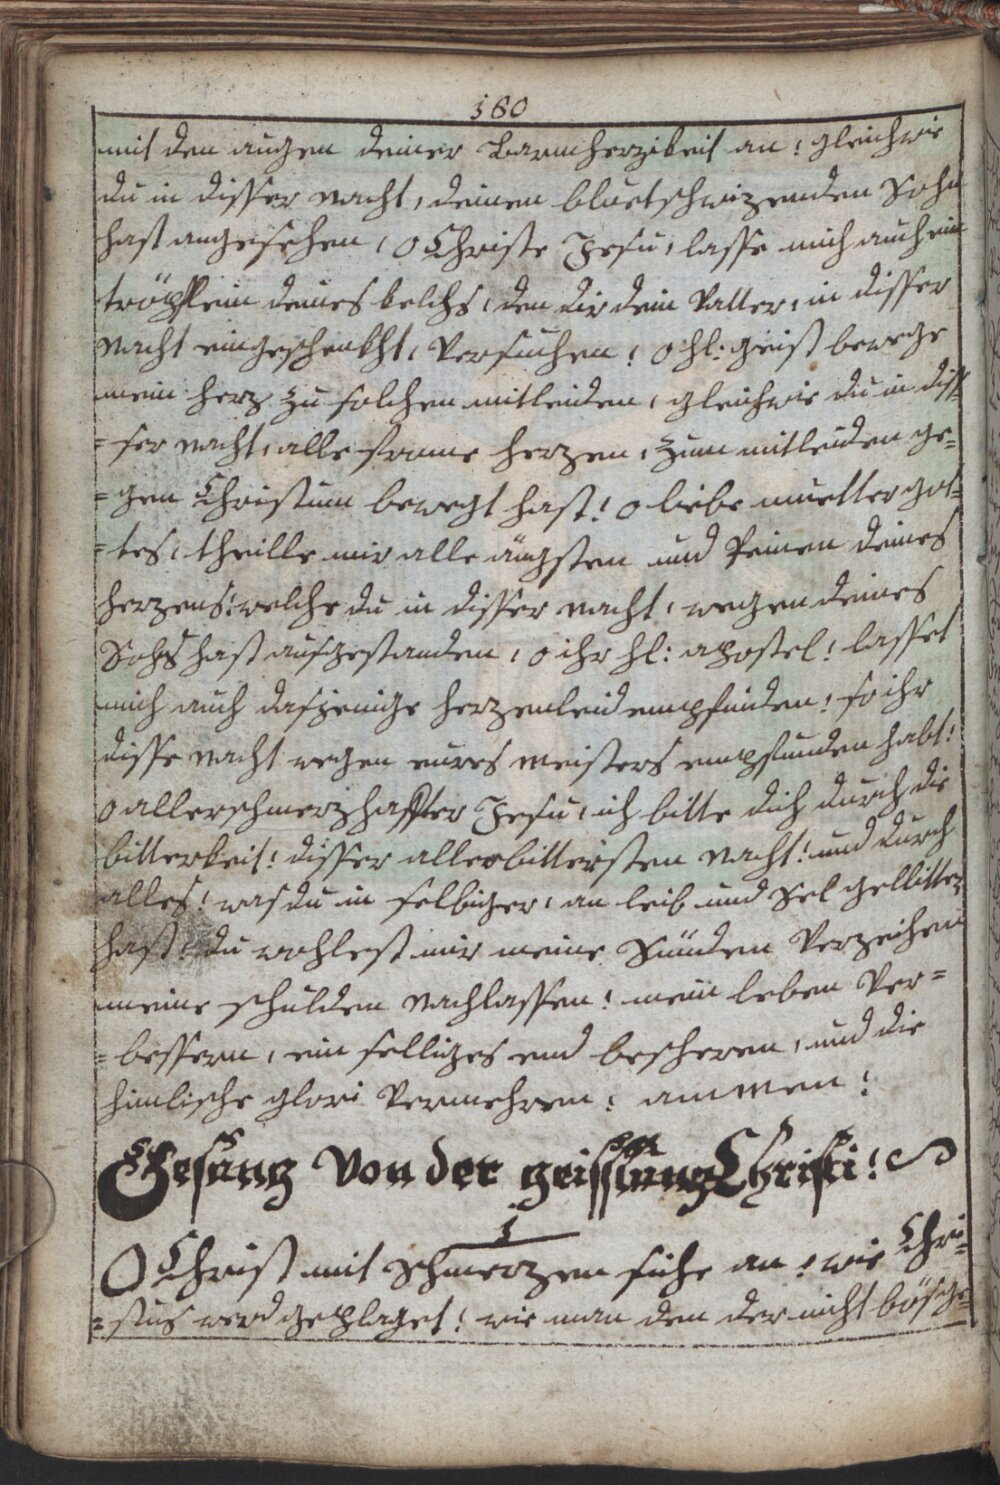 160
mit den augen deiner Barmherzikeit an! gleichwie
du in disser nacht, deinen bluetschwizenden Sohn
hast angesehen, O Christe Jesu, lasse mich auch ein
tröpflein deines kelchs, den dir dein Vatter, in disser
nacht eingeschenkht, Versuchen! O hl: geist bewege
mein herz zu solchen mitleiden, gleichwie du in diss=
=ser nacht, alle frome herzen, zum mitleiden ge=
=gen Christum bewegt hast! O liebe muetter got=
=tes, theille mir alle ängsten und Peinen deines
herzens, welche du in disser nacht, wegen deines
Sohs hast ausgestanden, O ihr hl: apostel! lasset
mich auch dasjenige herzenleid empfinden! so ihr
disse nacht wegen eures meisters empfunden habt!
O allerschmerzhaffter Jesu, ich bitte dich durch die
bitterkeit! disser allerbittersten nacht! und durch
alles! was du in selbiger, an leib und Sel gelitten
hast! du wohlest mir meine Sünden Verzeihen
meine schulden nachlassen! mein leben Ver=
=bessern, ein selliges end bescheren, und die
himlische glori Vermehren! ammen!
Gesang Von der geisslung Christi!
1
O Christ mit schmerzen sihe an! wie Chri=
=stus werd geplaget! wie man den der nicht bösge=